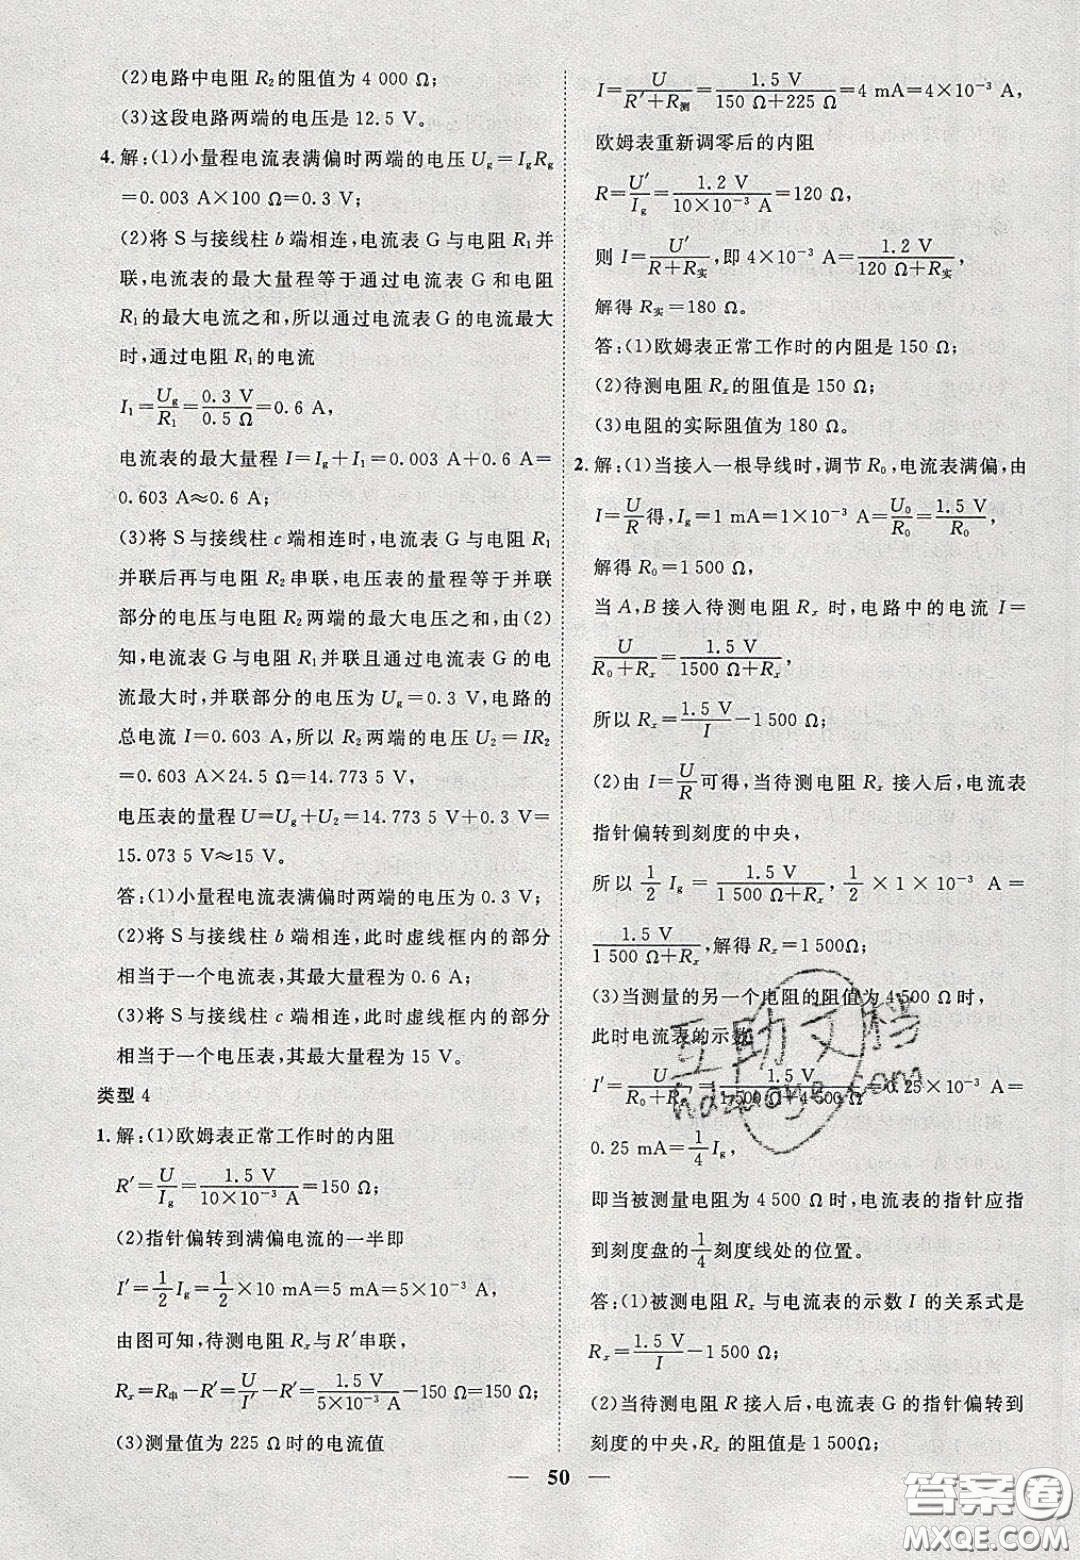 (2)电路中电阻 R₂的阻值为 4 000 Ω；
(3)这段电路两端的电压是 12.5 V。
4.解：(1)小量程电流表满偏时两端的电压 U_g=I_gR_g
=0.003 A×100 Ω=0.3 V；
(2)将 S与接线柱 b 端相连，电流表 G 与电阻 R₁并
联，电流表的最大量程等于通过电流表 G 和电阻
R₁的最大电流之和，所以通过电流表 G的电流最大
时，通过电阻 R₁的电流
I₁=U_g/R₁=0.3 V/0.5 Ω=0.6 A，
电流表的最大量程 I=I_g+I₁=0.003 A+0.6 A=
0.603 A≈0.6 A；
(3)将 S 与接线柱 c 端相连时，电流表 G 与电阻 R₁
并联后再与电阻 R₂串联，电压表的量程等于并联
部分的电压与电阻 R₂两端的最大电压之和，由(2)
知，电流表 G与电阻 R₁并联且通过电流表 G 的电
流最大时，并联部分的电压为 U_g=0.3 V，电路的
总电流 I=0.603 A，所以 R₂两端的电压 U₂=IR₂
=0.603 A×24.5 Ω=14.773 5 V，
电压表的量程 U=U_g+U₂=14.773 5 V+0.3 V=
15.073 5 V≈15 V。
答：(1)小量程电流表满偏时两端的电压为 0.3 V；
(2)将 S与接线柱 b 端相连，此时虚线框内的部分
相当于一个电流表，其最大量程为 0.6 A；
(3)将 S与接线柱 c 端相连，此时虚线框内的部分
相当于一个电压表，其最大量程为 15 V。
类型 4
1.解：(1)欧姆表正常工作时的内阻
R′=U/I_g=1.5 V/10×10⁻³ A=150 Ω；
(2)指针偏转到满偏电流的一半即
I′=1/2 I_g=1/2×10 mA=5×10⁻³ A，
由图可知，待测电阻 Rₓ与 R′串联，
Rₓ=R串−R′=U/I′−R′=1.5 V/5×10⁻³ A−150 Ω=150 Ω；
(3)测量值为 225 Ω时的电流值
I=U/R′+R测=1.5 V/150 Ω+225 Ω=4 mA=4×10⁻³ A，
欧姆表重新调零后的内阻
R=U′/I_g=1.2 V/10×10⁻³ A=120 Ω，
则 I=U′/R+R实，即 4×10⁻³ A=1.2 V/120 Ω+R实，
解得 R实=180 Ω。
答：(1)欧姆表正常工作时的内阻是 150 Ω；
(2)待测电阻 Rₓ的阻值是 150 Ω；
(3)电阻的实际阻值为 180 Ω。
2.解：(1)当接入一根导线时，调节 R₀，电流表满偏，由
I=U/R得，I_g=1 mA=1×10⁻³ A=U₀/R₀=1.5 V/R₀，
解得 R₀=1 500 Ω，
当 A，B接入待测电阻 Rₓ 时，电路中的电流 I=
U/R₀+Rₓ=1.5 V/1500 Ω+Rₓ，
所以 Rₓ=1.5 V/I−1 500 Ω；
(2)由 I=U/R可得，当待测电阻 Rₓ 接入后，电流表
指针偏转到刻度的中央，
所以 1/2 I_g=1.5 V/1 500 Ω+Rₓ，1/2×1×10⁻³ A=
1.5 V/1 500 Ω+Rₓ，解得 Rₓ=1 500Ω；
(3)当测量的另一个电阻的阻值为 4 500 Ω 时，
此时电流表的示数
I′=U/R₀+Rₓ=1.5 V/1 500 Ω+4 500 Ω=0.25×10⁻³ A=
0.25 mA=1/4 I_g，
即当被测量电阻为 4 500 Ω时，电流表的指针应指
到刻度盘的1/4刻度线处的位置。
答：(1)被测电阻 Rₓ 与电流表的示数 I 的关系式是
Rₓ=1.5 V/I−1 500 Ω；
(2)当待测电阻 R 接入后，电流表 G 的指针偏转到
刻度的中央，Rₓ 的阻值是 1 500Ω；
50
互助文档
hdzuoye.com
答案圈
MXQE.COM